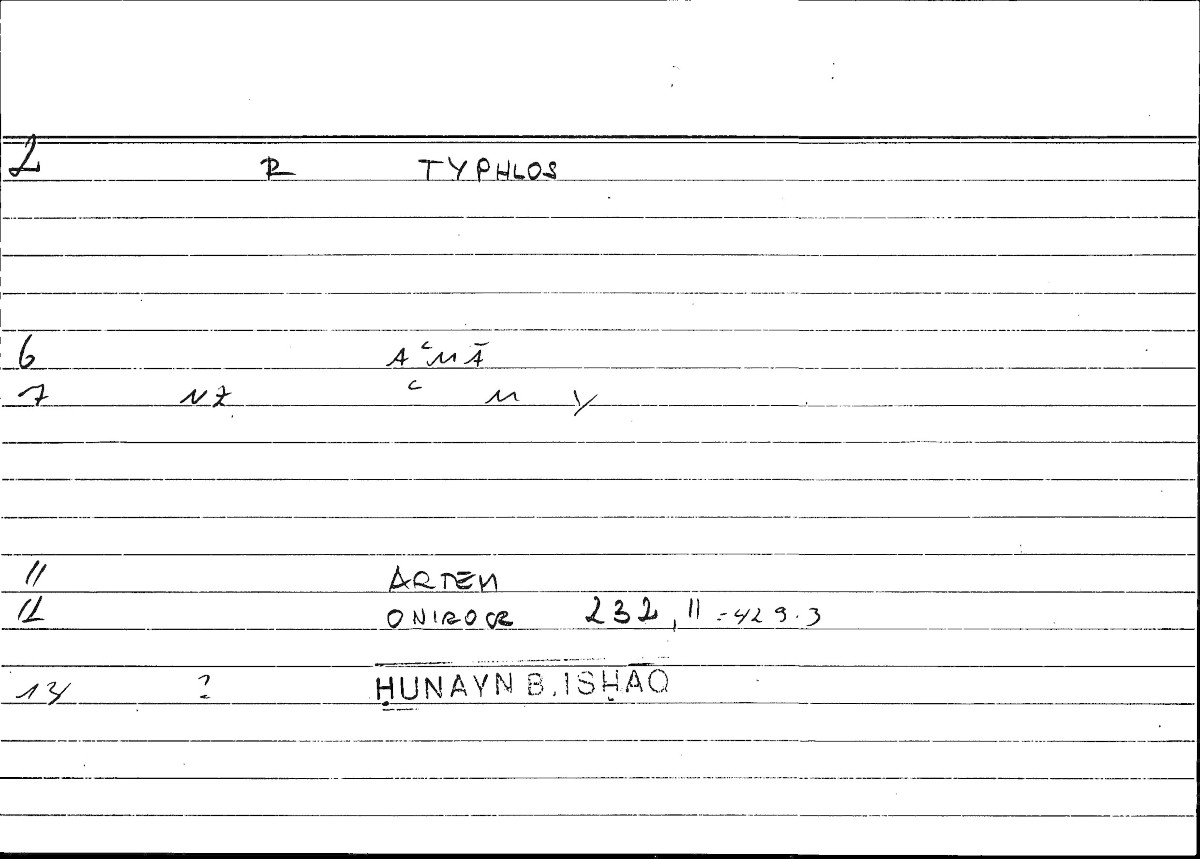 2 R TYPHLOS
6 AʿMĀ
7 NZ ʿ M Y
11 ARTEM
12 ONIROCR 232, 11 = 429.3
13 ? ḤUNAYN B. ISḤAQ